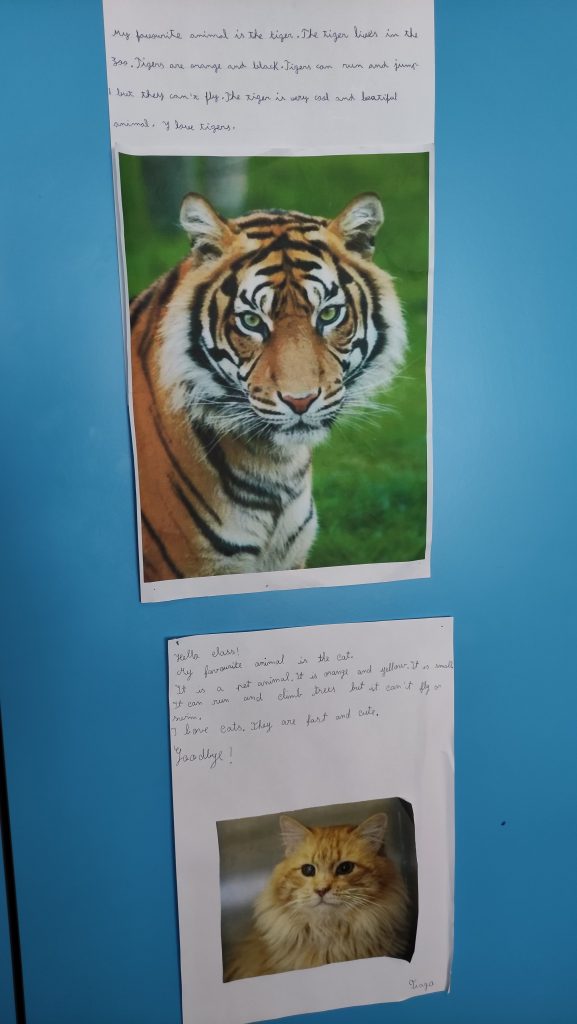 My favourite animal is the tiger. The tiger lives in the
Zoo. Tigers are orange and black. Tigers can run and jump
but they can't fly. The tiger is very cool and beatiful
animal. I love tigers.
Hello class!
My favourite animal is the cat.
It is a pet animal. It is orange and yellow. It is small
It can run and climb trees but it can't fly or
swim.
I love cats. They are fast and cute.
Goodbye!